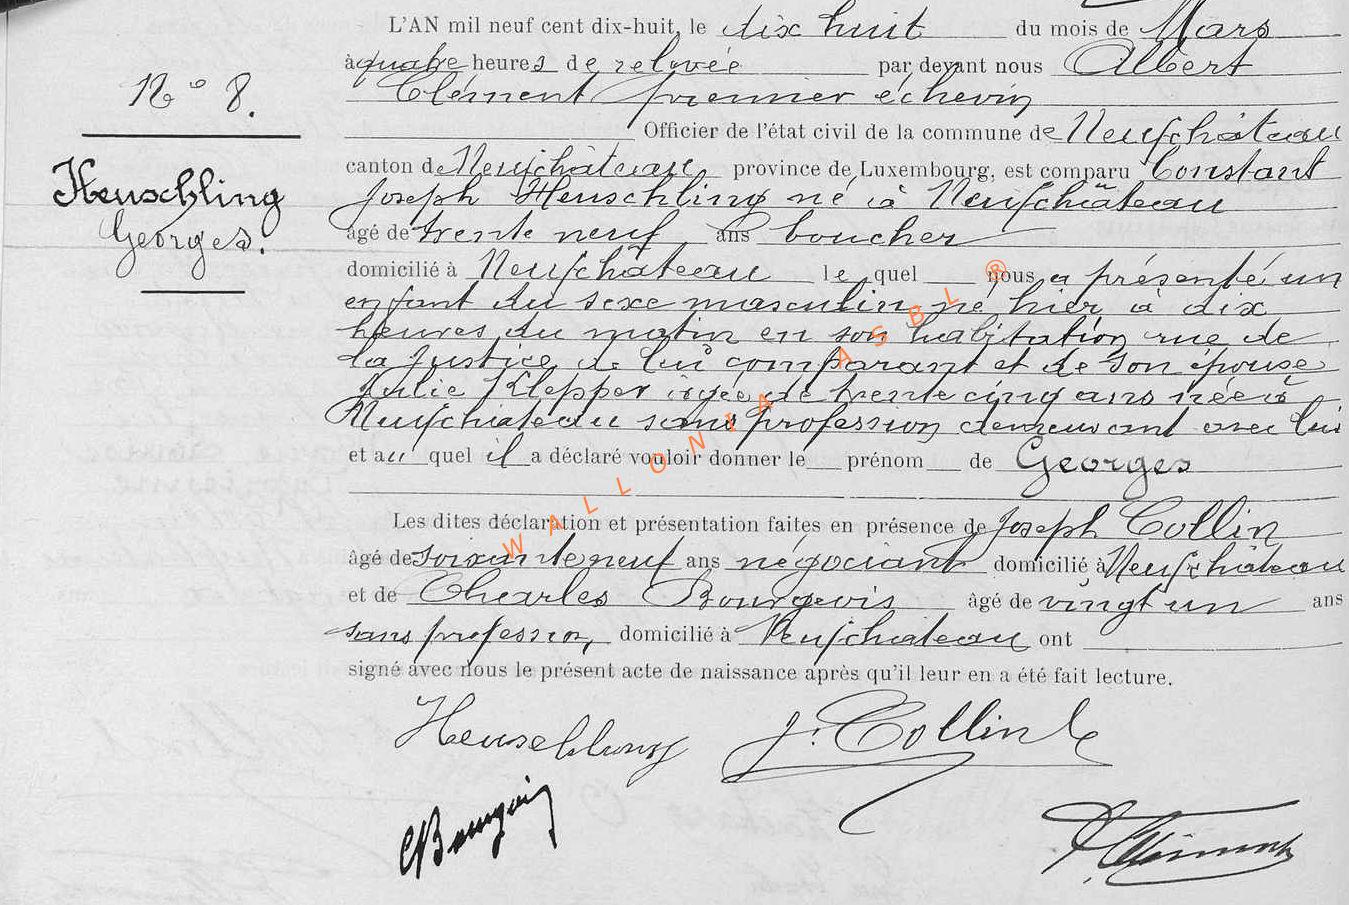 L'AN mil neuf cent dix-huit, le dix huit du mois de Mars
à quatre heures de relevée par devant nous Albert
Clément premier échevin
N° 8.
Officier de l'état civil de la commune de Neufchâteau
canton de Neufchâteau province de Luxembourg, est comparu Constant
Heuschling
Georges.
Joseph Heuschling né à Neufchâteau
âgé de trente neuf ans boucher
domicilié à Neufchâteau le quel nous a présenté un
enfant du sexe masculin né hier à dix
heures du matin en son habitation rue de
la Justice de lui comparant et de son épouse
Julie Klepper âgée de trente cinq ans née à
Neufchâteau sans profession demeurant avec lui
et au quel il a déclaré vouloir donner le prénom de Georges
Les dites déclaration et présentation faites en présence de Joseph Collin
âgé de soixante neuf ans négociant domicilié à Neufchâteau
et de Charles Bourgeois âgé de vingt un ans
sans profession, domicilié à Neufchateau ont
signé avec nous le présent acte de naissance après qu'il leur en a été fait lecture.
Heuschling J. Collin
C Bourgeois
A. Clément
WALLONIA ASBL ®